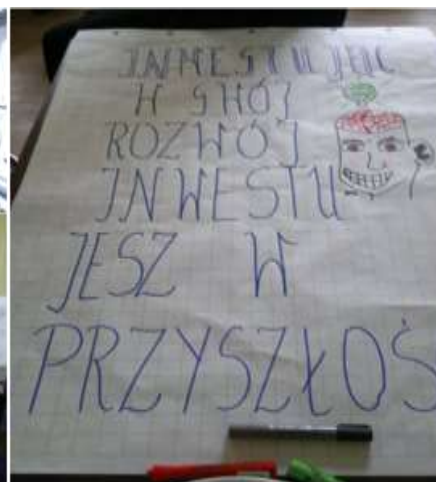 INWESTUJĄC
W SWÓJ
ROZWÓJ
INWESTU
JESZ W
PRZYSZŁOŚ